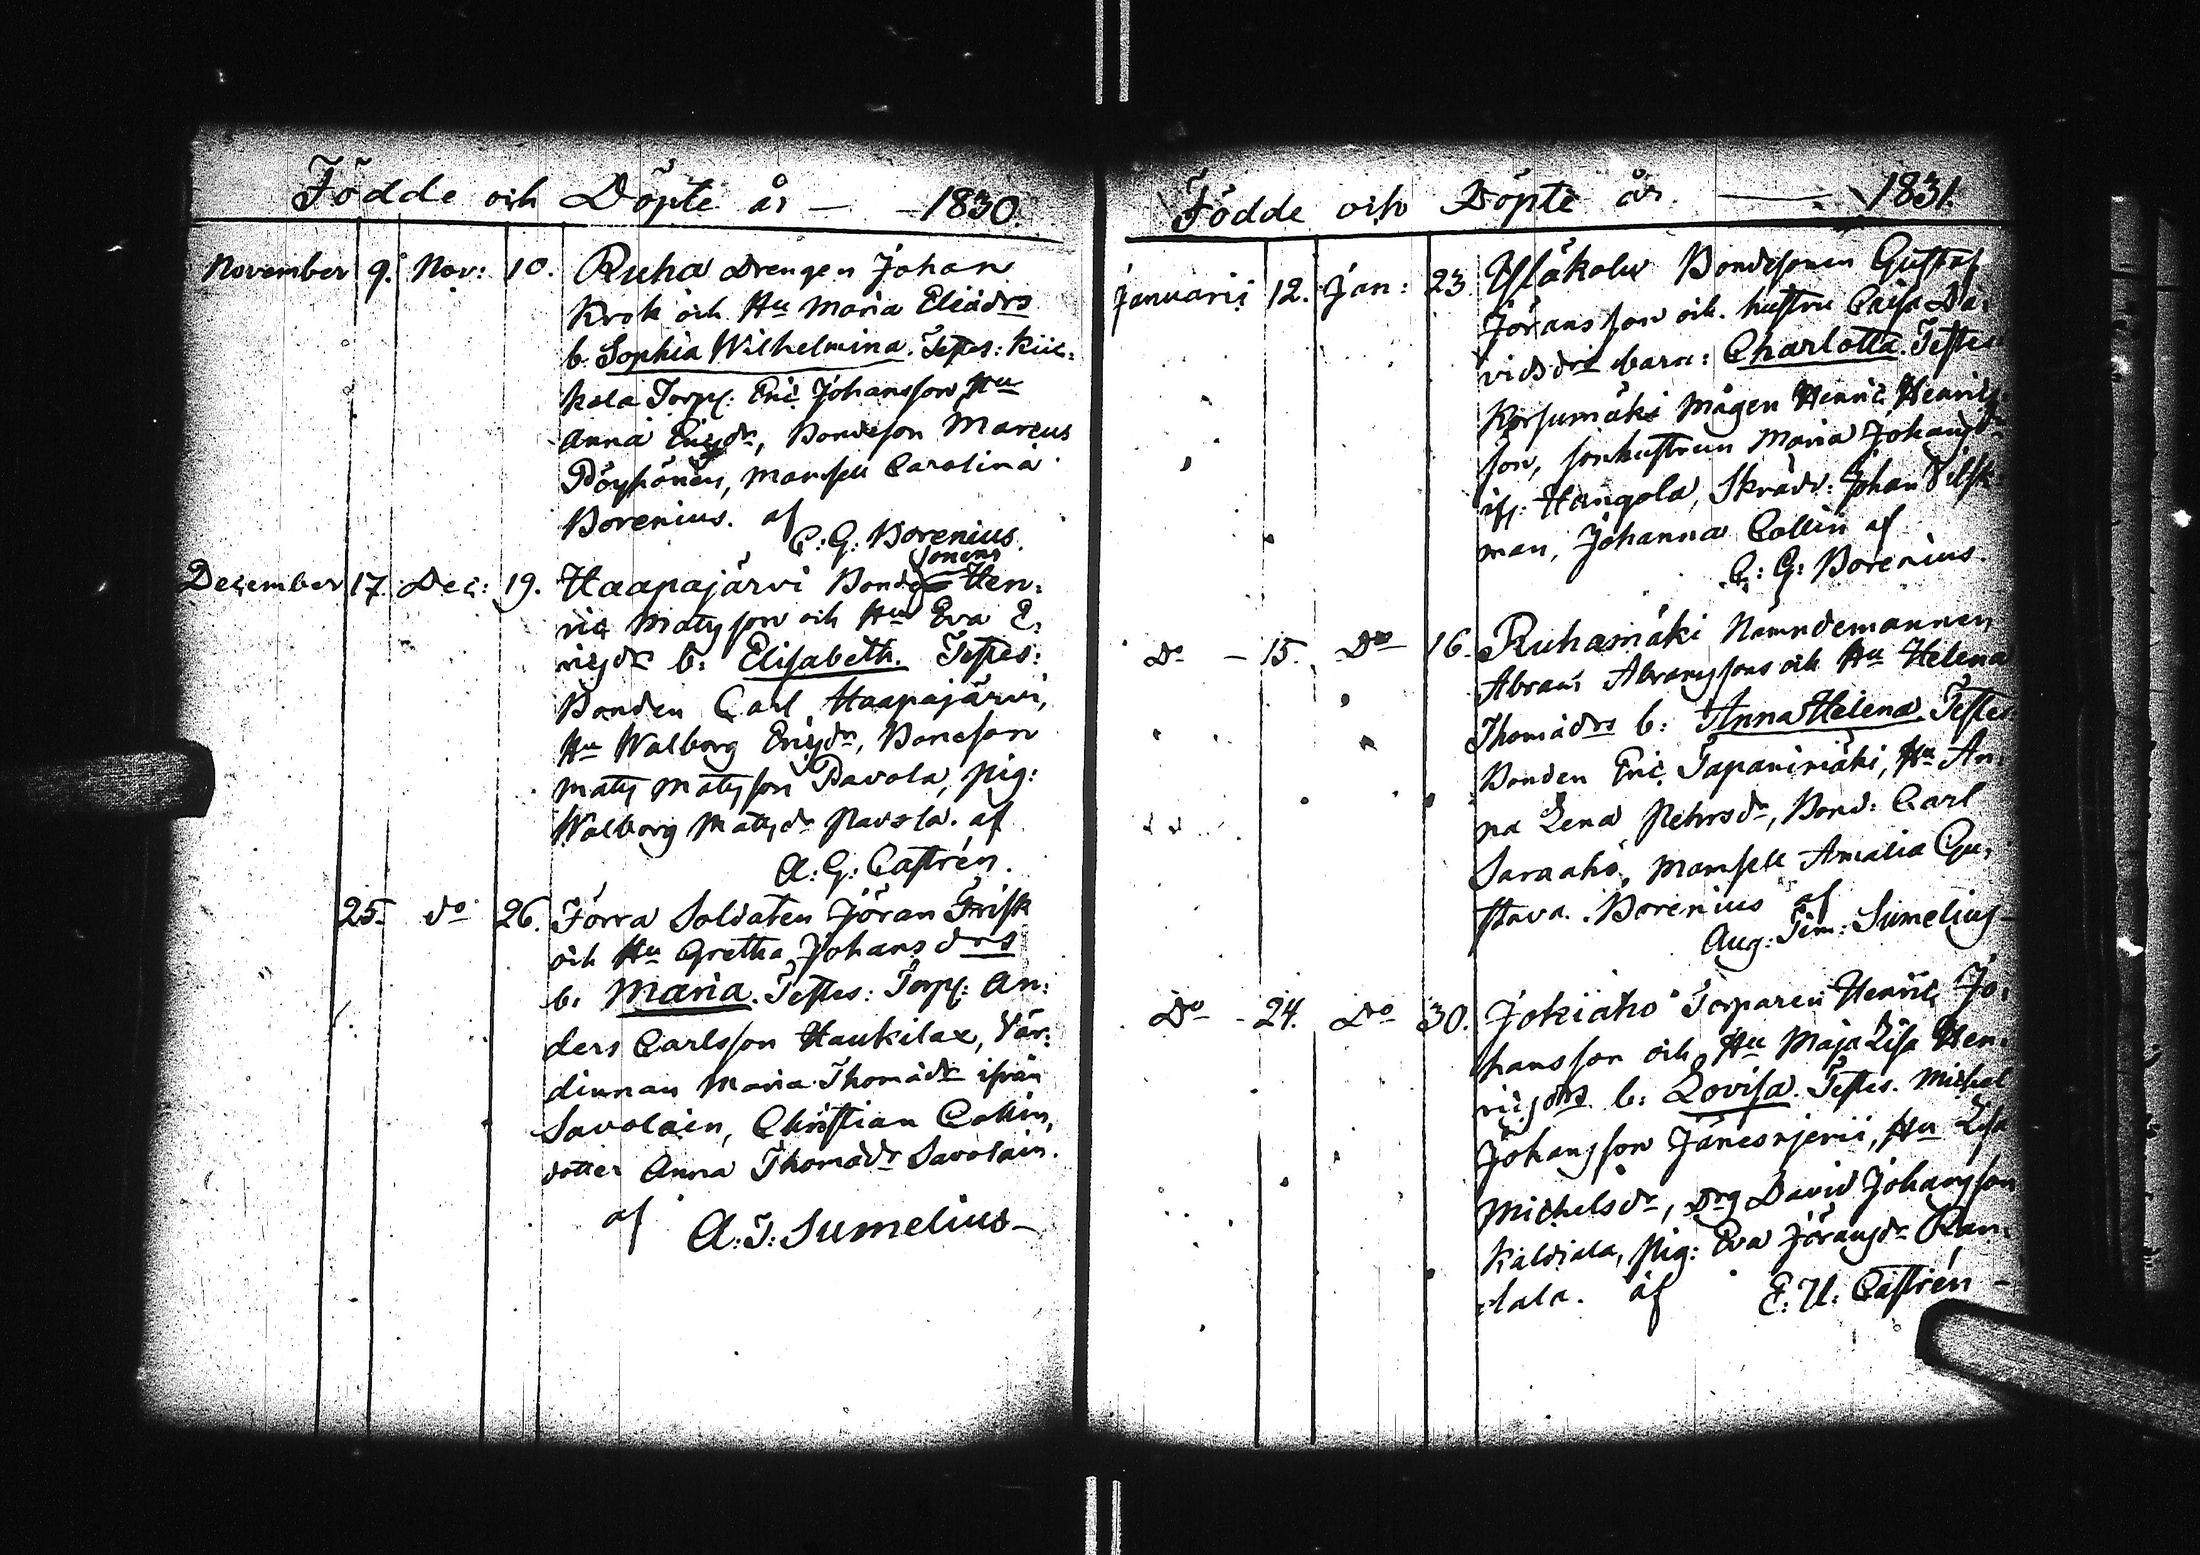 Födde och Döpte år — 1830.
November 9. Nov: 10. Ruha Drengen Johan
Krok och Hu Maria Eliædrs
b. Sophia Wilhelmina. Testes: Kiic-
kala Torp: Eric Johansson, Hu
Anna Ericsdr, Bondeson Marcus
Pöyhönen, Mamsell Carolina
Borenius. af
C: G: Borenius.
sonens
December 17. Dec: 19. Haapajärvi Bonde Hen-
ric Matsson och Hu Eva E-
ricsdrs b: Elisabeth. Testes:
Bonden Carl Haapajärvi,
Hu Walborg Ericsdr, Boneson
Mats Matsson Pavola, pig:
Walborg Matsdr Pavola. af
A: G: Castrén.
25. do 26. Torra Soldaten Jöran Frisk
och Hu Gretha Johansdrs
b. Maria. Testes: Torp: An-
ders Carlsson Haukilax, Vär-
dinnan Maria Thomædr ifrån
Savolain, Christian Collin,
dotter Anna Thomædr Savolain.
af A: T: Sumelius
Födde och Döpte år — 1831.
Januarii 12. Jan: 23. Yläkolu Bondesonen Gustaf
Jöransson och hustru Caisa Da-
vidsdrs barn: Charlotta. Testes
Korsumäki Mågen Henric Henrics-
son, sonhustrun Maria Johansdr
if: Hangola, Skräd: Johan Vilsk-
man, Johanna Collin af
C: G: Borenius.
Do 15. Do 16. Ruhamäki Nämndemannen
Abram Abramssons och Hu Helena
Thomædrs b: Anna Helena. Testes
Bonden Eric Tapanimäki, Hu An-
na Lena Pehrsdr, Bond: Carl
Saraaho, Mamsell Amalia Gu-
stava Borenius af
Aug: Tim: Sumelius
Do 24. Do 30. Jokiaho Torparen Henric Jo-
hansson och Hu Maja Lisa Hen-
ricsdrs b: Lovisa. Testes. Michel
Johansson Jänesnjemi, Hu Lisa
Michelsdr, Drg David Johansson
Kaldiala, pig: Eva Jöransdr Ran-
tala. af E: U: Castrén